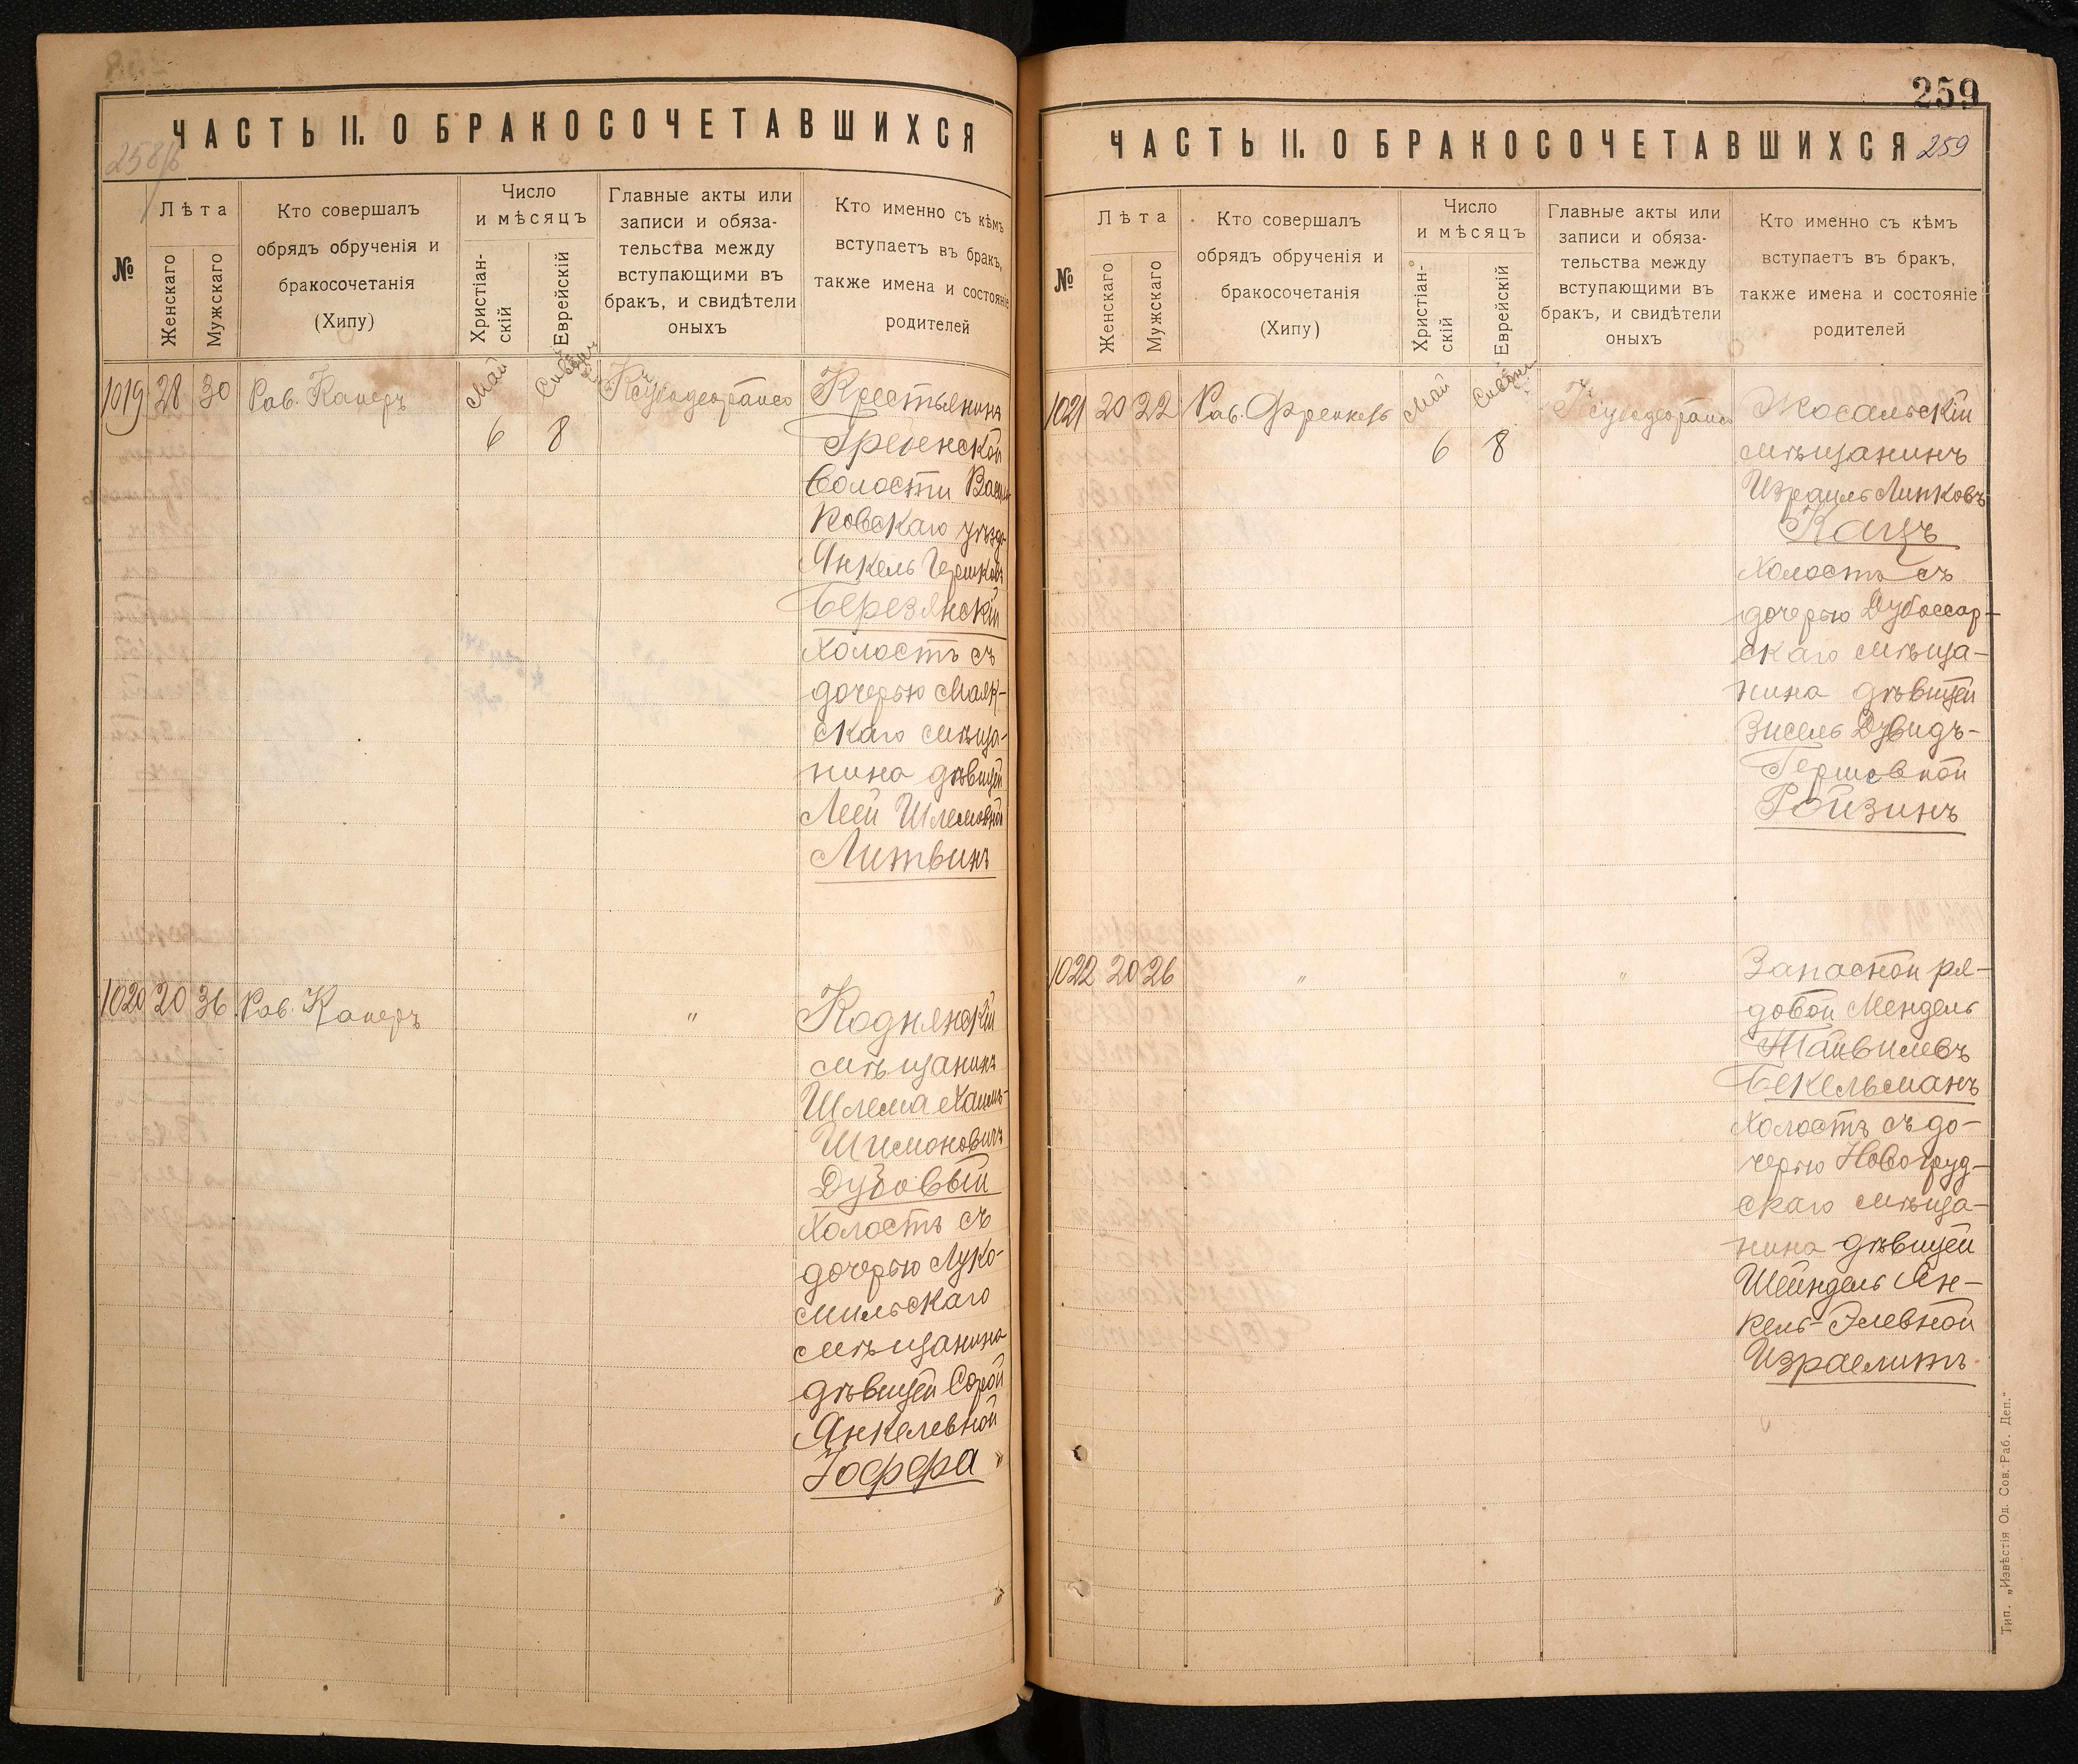 ЧАСТЬ II. О БРАКОСОЧЕТАВШИХСЯ
258/б
№
Лѣта
Женскаго
Мужскаго
Кто совершалъ
обрядъ обрученія и
бракосочетанія
(Хипу)
Число
и мѣсяцъ
Христіан-
скій
Еврейскій
Главные акты или
записи и обяза-
тельства между
вступающими въ
бракъ, и свидѣтели
оныхъ
Кто именно съ кѣмъ
вступаетъ въ бракъ,
также имена и состояніе
родителей
1019 28 30 Рав. Каперъ
Май
6
Сиванъ
8
Крестьянинъ
Гребенской
волости Васил
ковскаго уѣзда
Янкель Гершковъ
Березянскій
холостъ съ
дочерью Маяк-
скаго мѣща-
нина дѣвицей
Леей Шлемовной
Литвинъ
1020 20 36 Рав. Каперъ
"
Коднянскій
мѣщанинъ
Шлема Хаимъ-
Шимоновичъ
Дубовый
холостъ съ
дочерью Луко-
мильскаго
мѣщанина
дѣвицей Сорой
Янкелевной
Іоффа
259
ЧАСТЬ II. О БРАКОСОЧЕТАВШИХСЯ
259
№
Лѣта
Женскаго
Мужскаго
Кто совершалъ
обрядъ обрученія и
бракосочетанія
(Хипу)
Число
и мѣсяцъ
Христіан-
скій
Еврейскій
Главные акты или
записи и обяза-
тельства между
вступающими въ
бракъ, и свидѣтели
оныхъ
Кто именно съ кѣмъ
вступаетъ въ бракъ,
также имена и состояніе
родителей
1021 20 22 Рав. Френкель
Май
6
Сиванъ
8
Мосальскій
мѣщанинъ
Израиль Линковъ
Кацъ
холостъ съ
дочерью Дубоссар-
скаго мѣща-
нина дѣвицей
Зисель Дувидъ-
Гершовной
Ройзинъ
1022 20 26
"
"
Запасной ря-
довой Мендель
Тайвилевъ
Бекельманъ
холостъ съ до-
черью Новогруд-
скаго мѣща-
нина дѣвицей
Шейндель Ян-
кель-Элевной
Израелитъ
Тип. „Извѣстія Од. Сов. Раб. Деп."